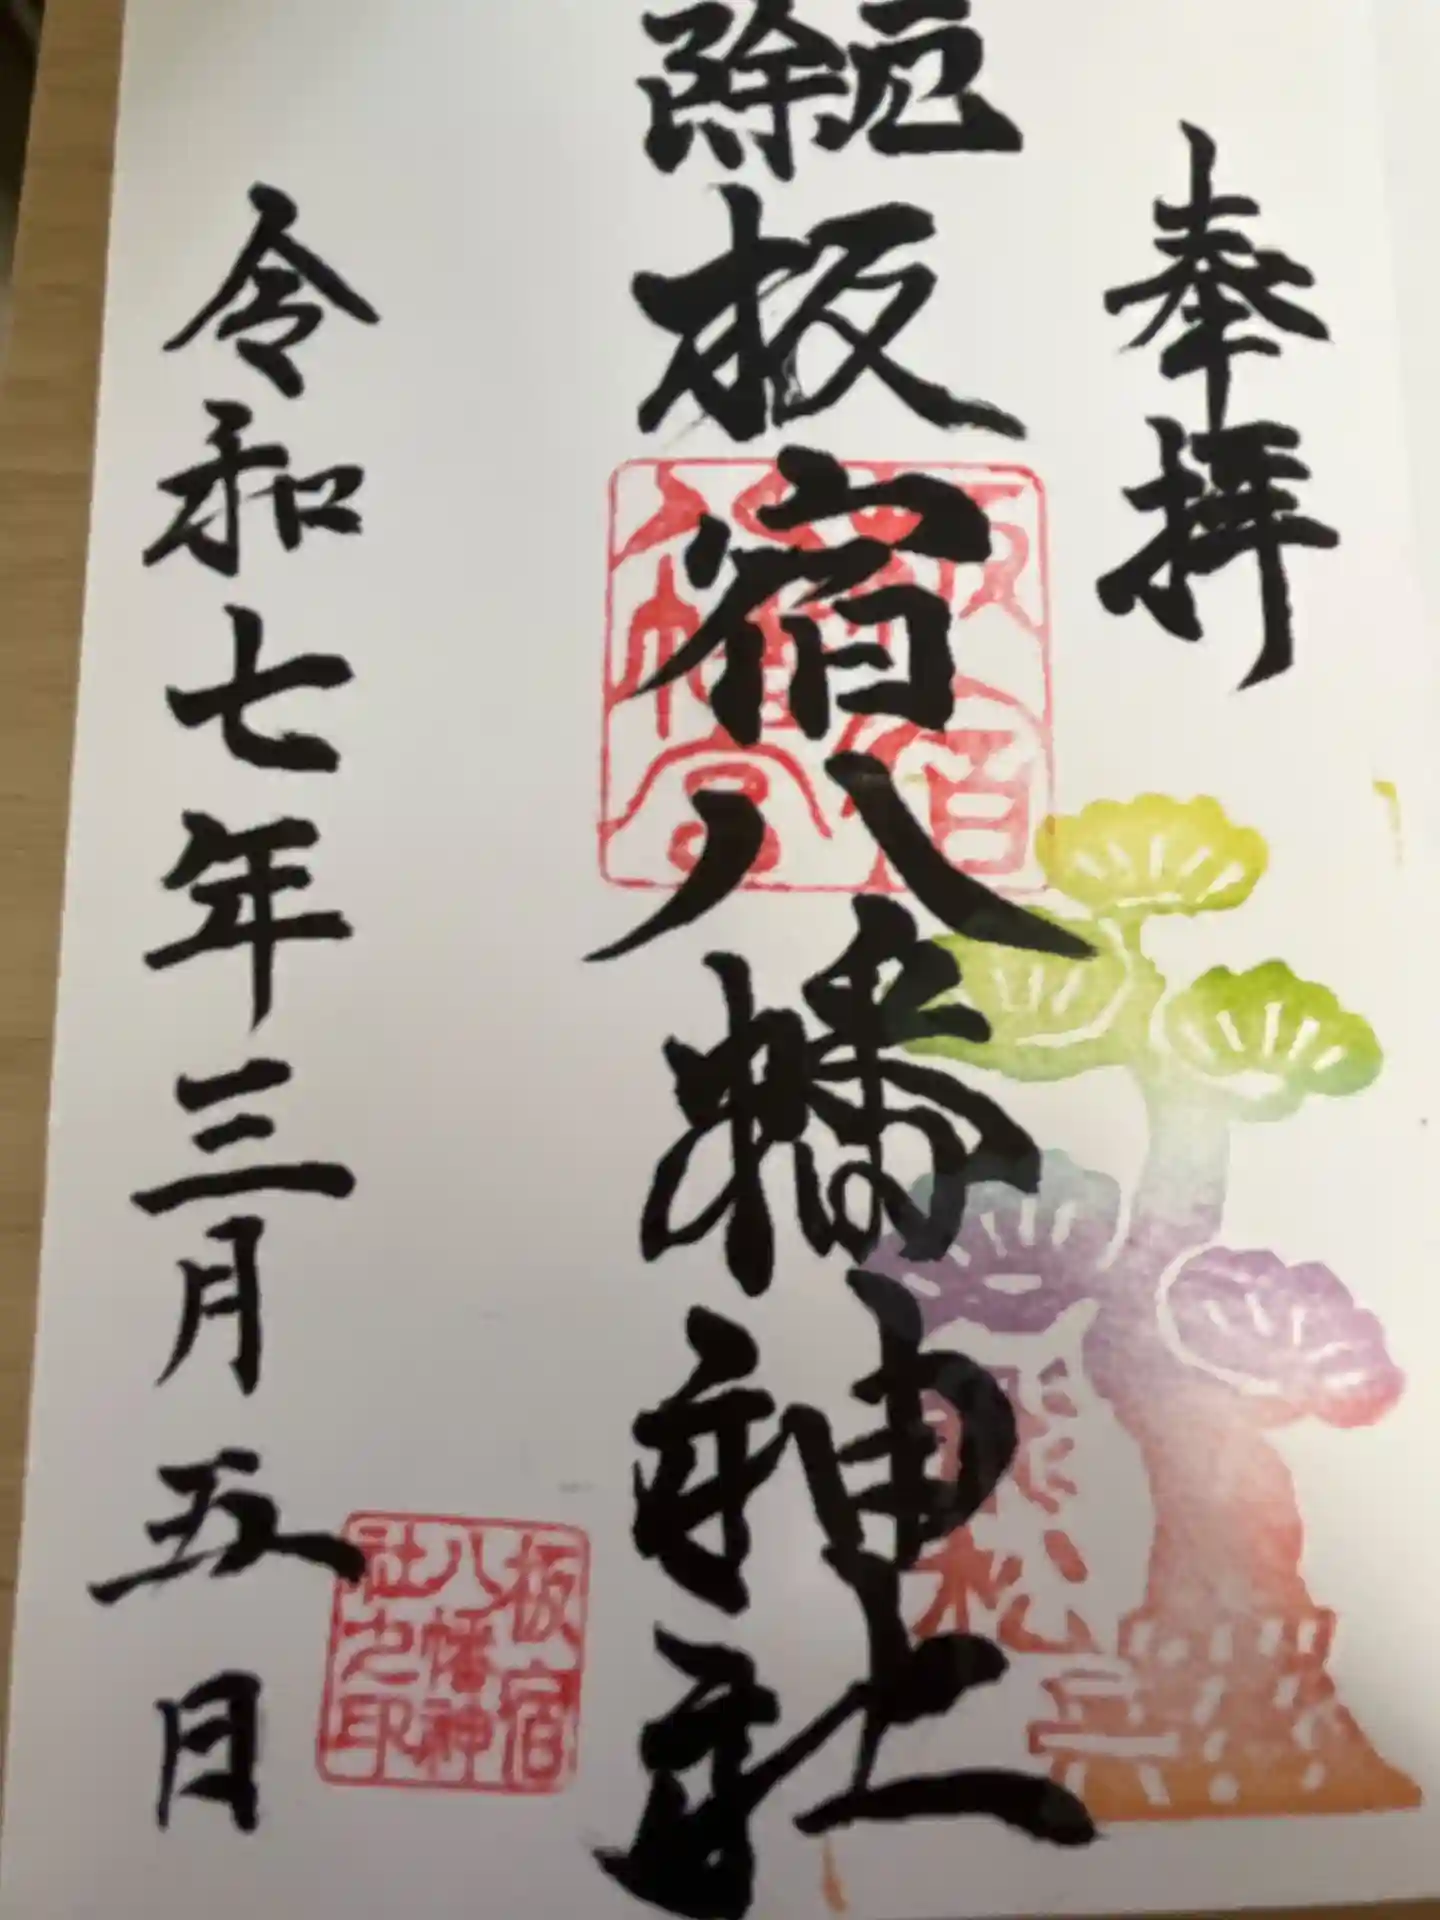 奉拝
厄除
板宿八幡神社
板宿
八幡宮
影松
板宿
八幡神
社之印
令和七年三月五日